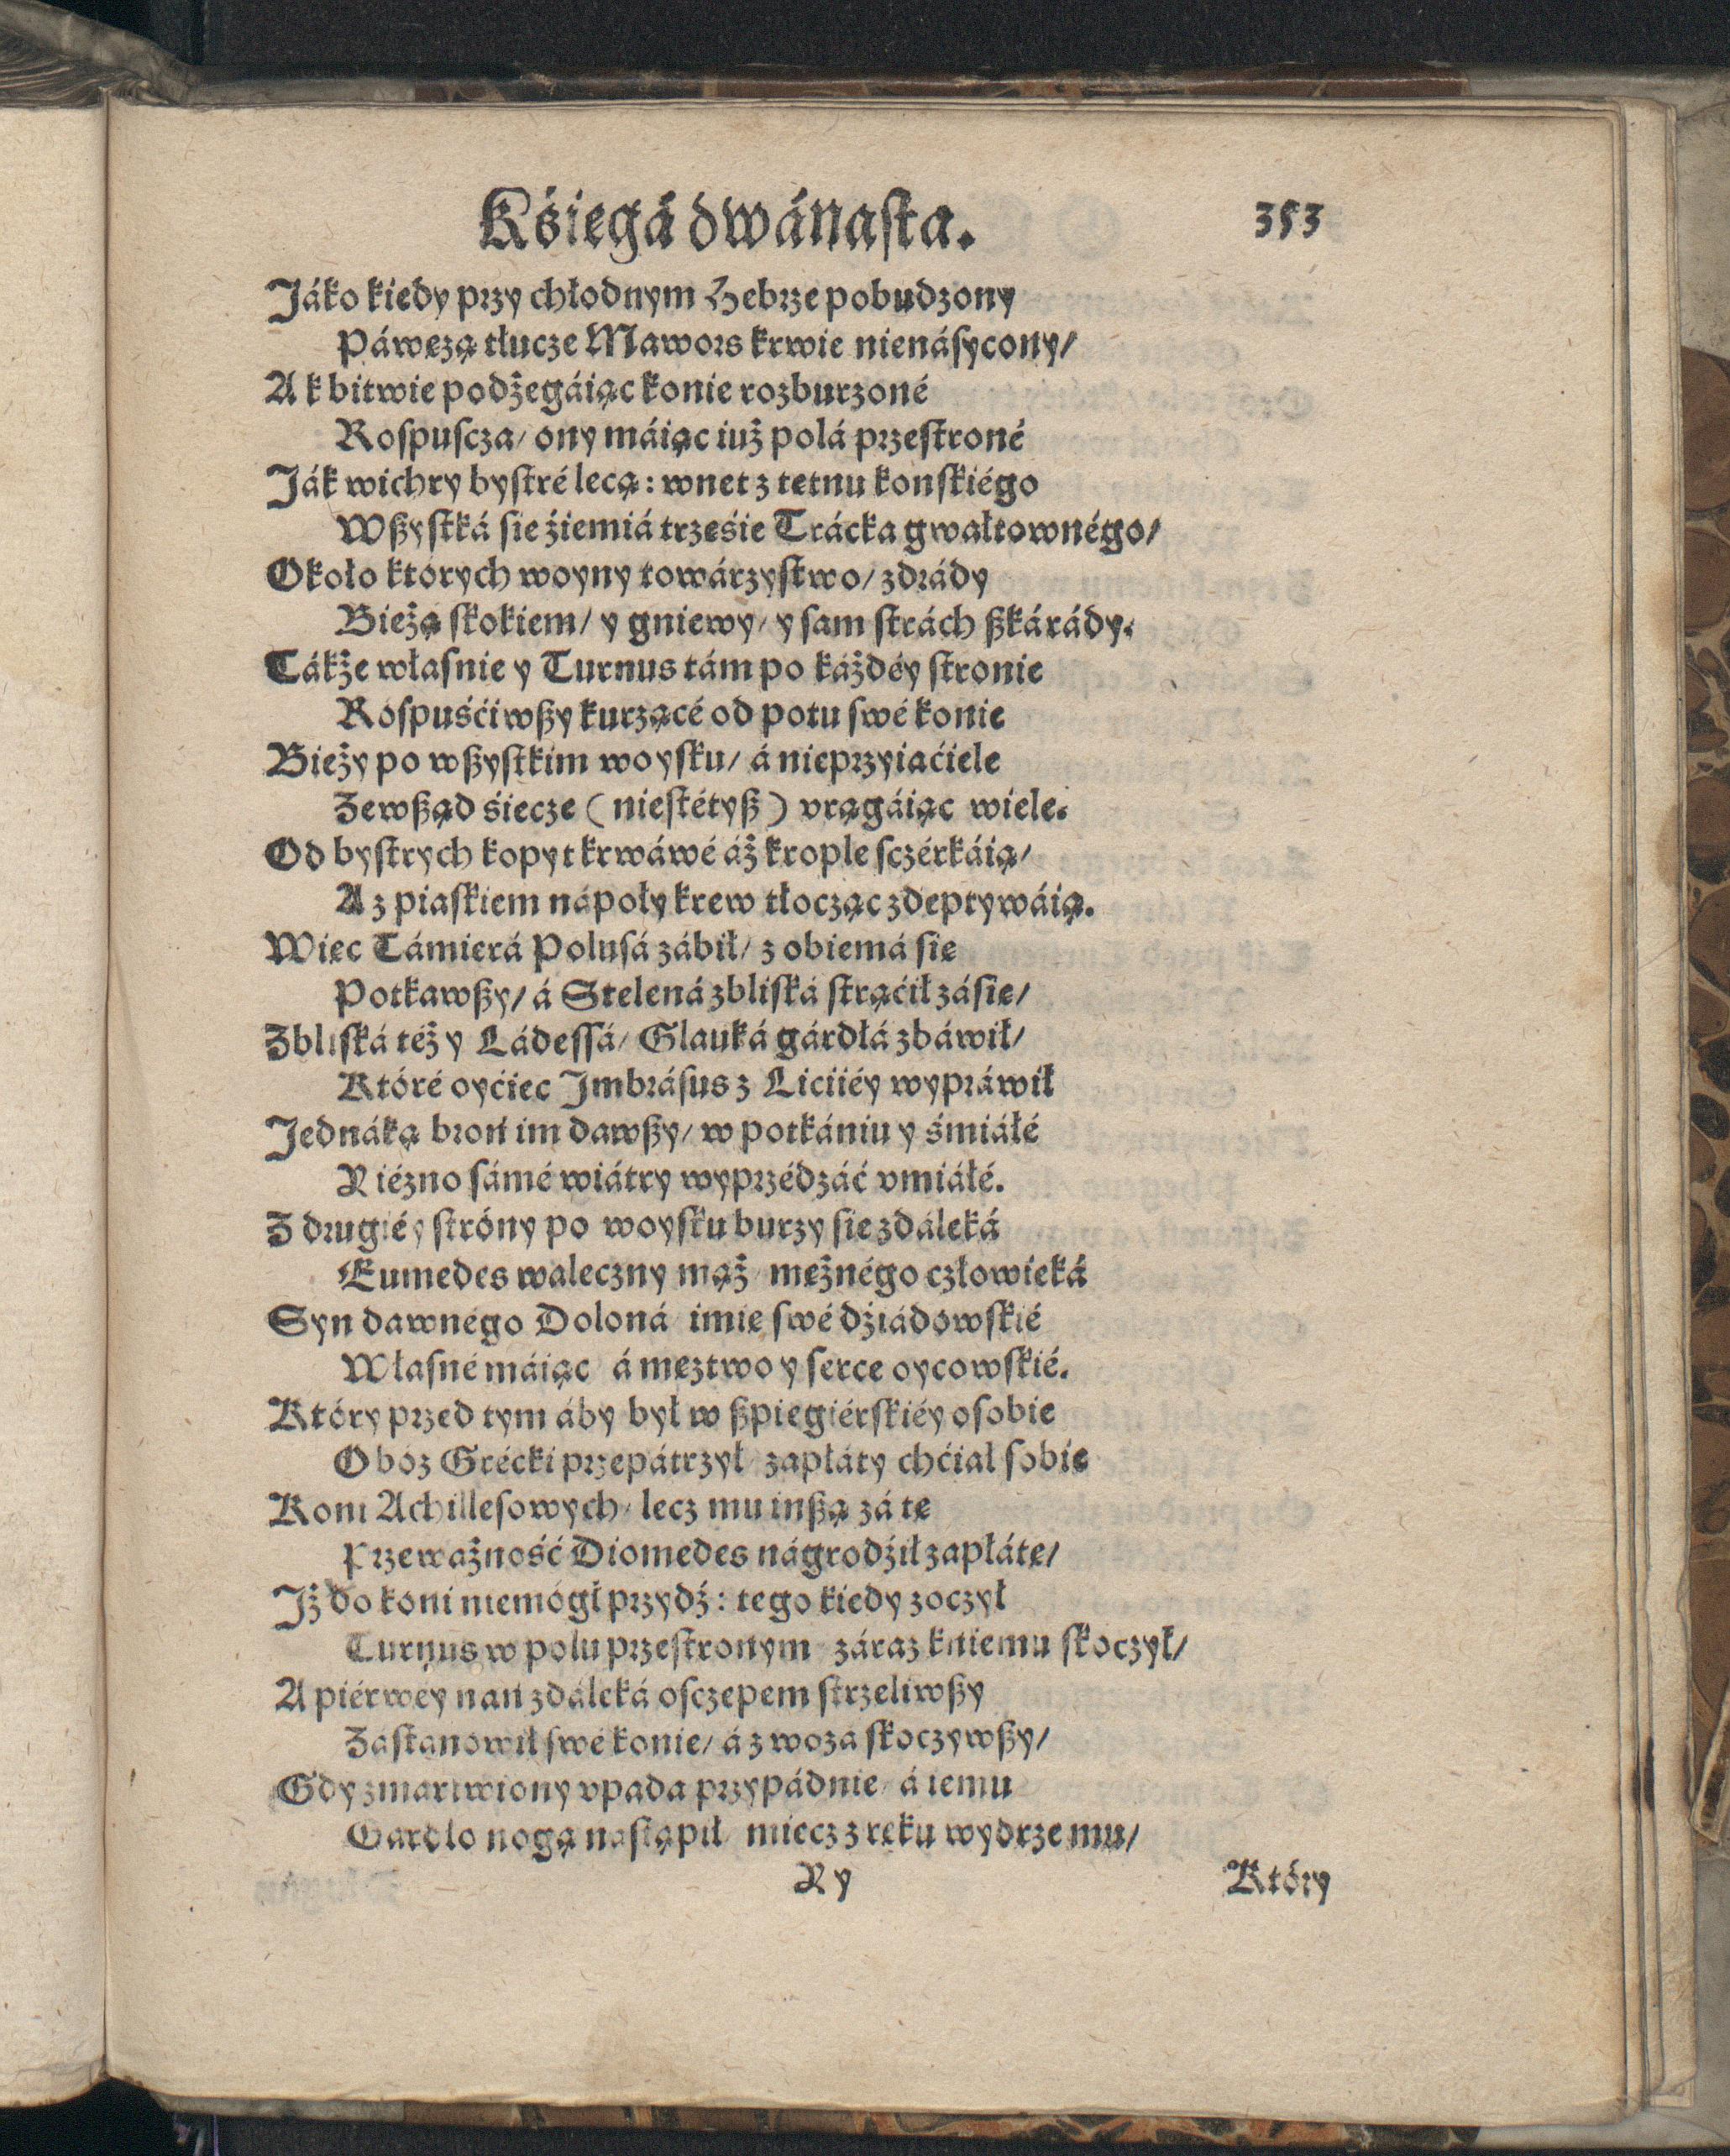 Kśięgá dwánaſta. 353
Jáko kiedy przy chłodnym Hebrze pobudzony
Páwęzą tłucze Mawors krwie nienáſycony/
A k bitwie podżegáiąc konie rozburzoné
Roſpuſcza/ ony máiąc iuż polá przeſtroné
Ják wichry byſtré lecą: wnet z tetnu konſkiégo
Wßyſtká ſie źiemiá trzęśie Trácka gwałtownégo/
Około których woyny towárzyſtwo/ zdrády
Bieżą ſkokiem/ y gniewy/ y ſam ſtrách ßkárády.
Tákże własnie y Turnus tám po káżdéy ſtronie
Rospuśćiwßy kurzącé od potu ſwé konie
Bieży po wßyſtkim woyſku/ á nieprzyiaćiele
Zewßąd śiecze (nieſtétyß) vrągáiąc wiele.
Od byſtrych kopyt krwáwé áż krople ſczérkáią/
A z piaſkiem nápoły krew tłocząc zdeptywáią.
Więc Támierá Polusá zábił/ z obiemá ſię
Potkawßy/ á Stelená zbliſká ſtrąćił záſie/
Zbliſká też y Ládeſſá/ Glauká gárdłá zbáwił/
Któré oyćiec Jmbráſus z Liciiéy wypráwił
Jednáką broń im dawßy/ w potkániu y śmiáłé
Niézno ſámé wiátry wyprzédzáć vmiáłé.
Z drugiéy ſtróny po woyſku burzy ſie zdáleká
Eumedes waleczny mąż/ mężnégo człowieká
Syn dawnégo Doloná/ imię ſwé dźiádowſkié
Właſné máiąc/ á męztwo y ſerce oycowſkié.
Który przed tym áby był w ßpiegiérſkiéy oſobie
Obóz Grécki przepátrzył/ zapłáty chćiał ſobie
Koni Achilleſowych/ lecz mu inßą zá tę
Przeważność Diomedes nágrodźił zapłátę/
Jż do koni niemógł przydź: tego kiedy zoczył
Turnus w polu przeſtronym/ záraz kniemu ſkoczył/
A piérwéy nań zdáleká oſczepem ſtrzeliwßy
Záſtánowił ſwé konie/ á z wozá ſkoczywßy/
Gdy zmartwiony vpada przypádnie/ á iemu
Gardło nogą náſtąpił/ miecz z ręku wydrze mu/
Ny Który